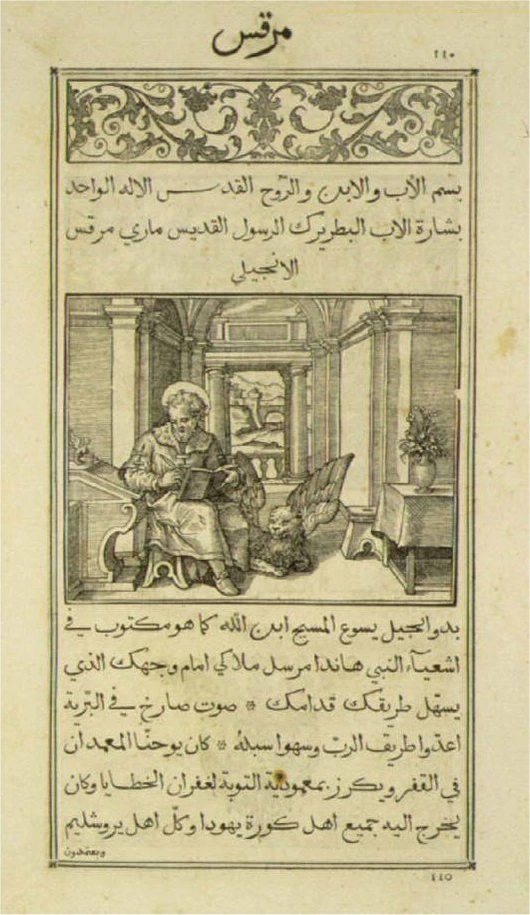 مرقس
١١٠
بسم الأب والابن والرّوح القدس الاله الواحد
بشارة الاب البطريرك الرسول القديس ماري مرقس
الانجيلي
بدو انجيل يسوع المسيح ابن الله كما هو مكتوب في
اشعيآء النبي هاندا مرسل ملاكي امام وجهك الذي
يسهّل طريقك قدامك * صوت صارخ في البّرية
اعدّوا طريق الربّ وسهوا سبلهُ * كان يوحنّا المعمدان
في القفر ويكرز بمعمودية التوبة لغفران الخطايا وكان
يخرج اليه جميع اهل كورة يهودا وكلّ اهل يروشليم
ويعتمدون
١١٥